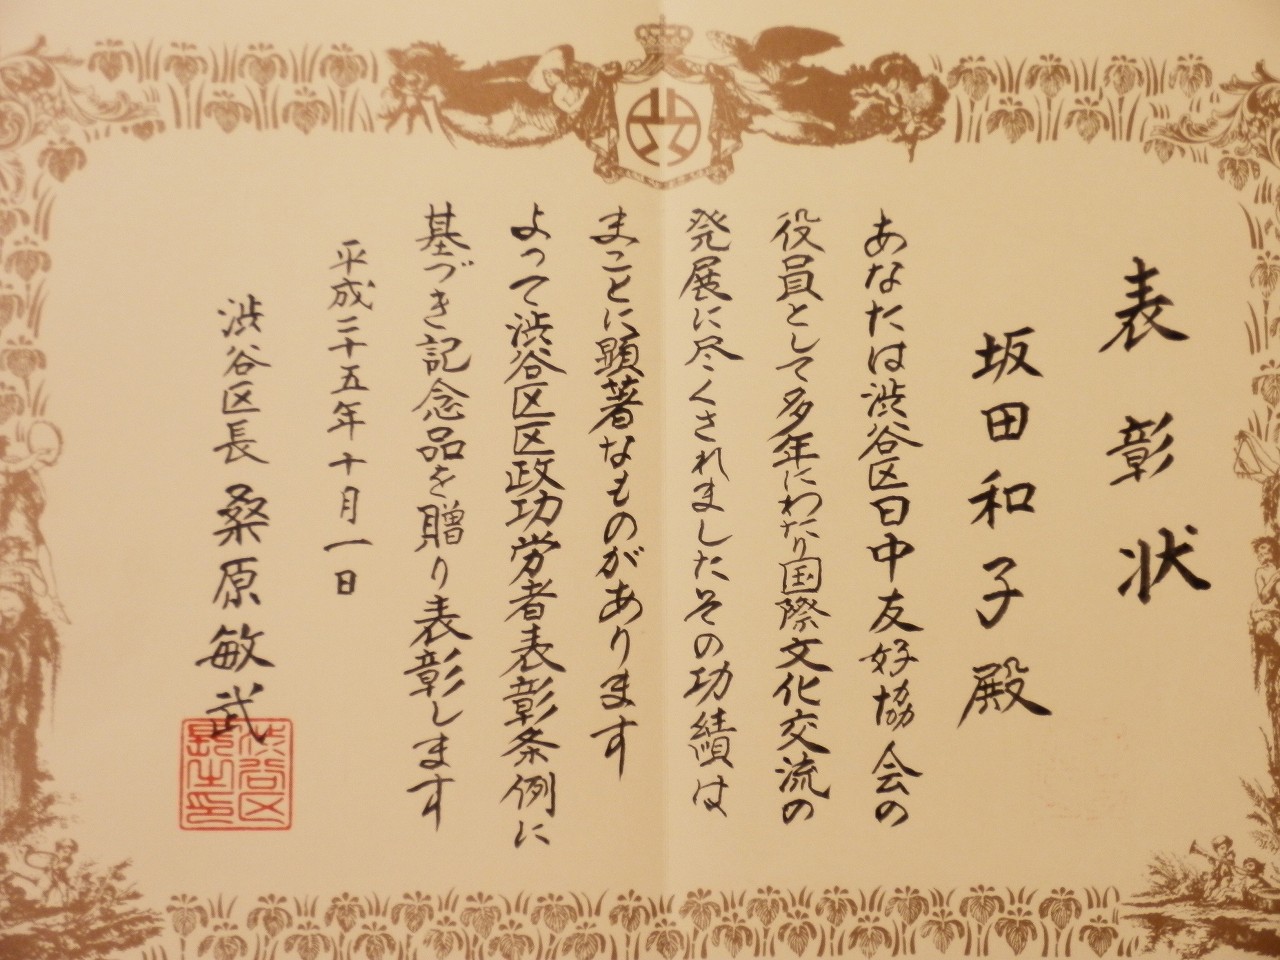 表彰状
坂田和子殿
あなたは渋谷区日中友好協会の
役員として多年にわたり国際文化交流の
発展に尽くされましたその功績は
まことに顕著なものがあります
よって渋谷区区政功労者表彰条例に
基づき記念品を贈り表彰します
平成二十五年十月一日
渋谷区長 桑原敏武
渋谷区
長之印